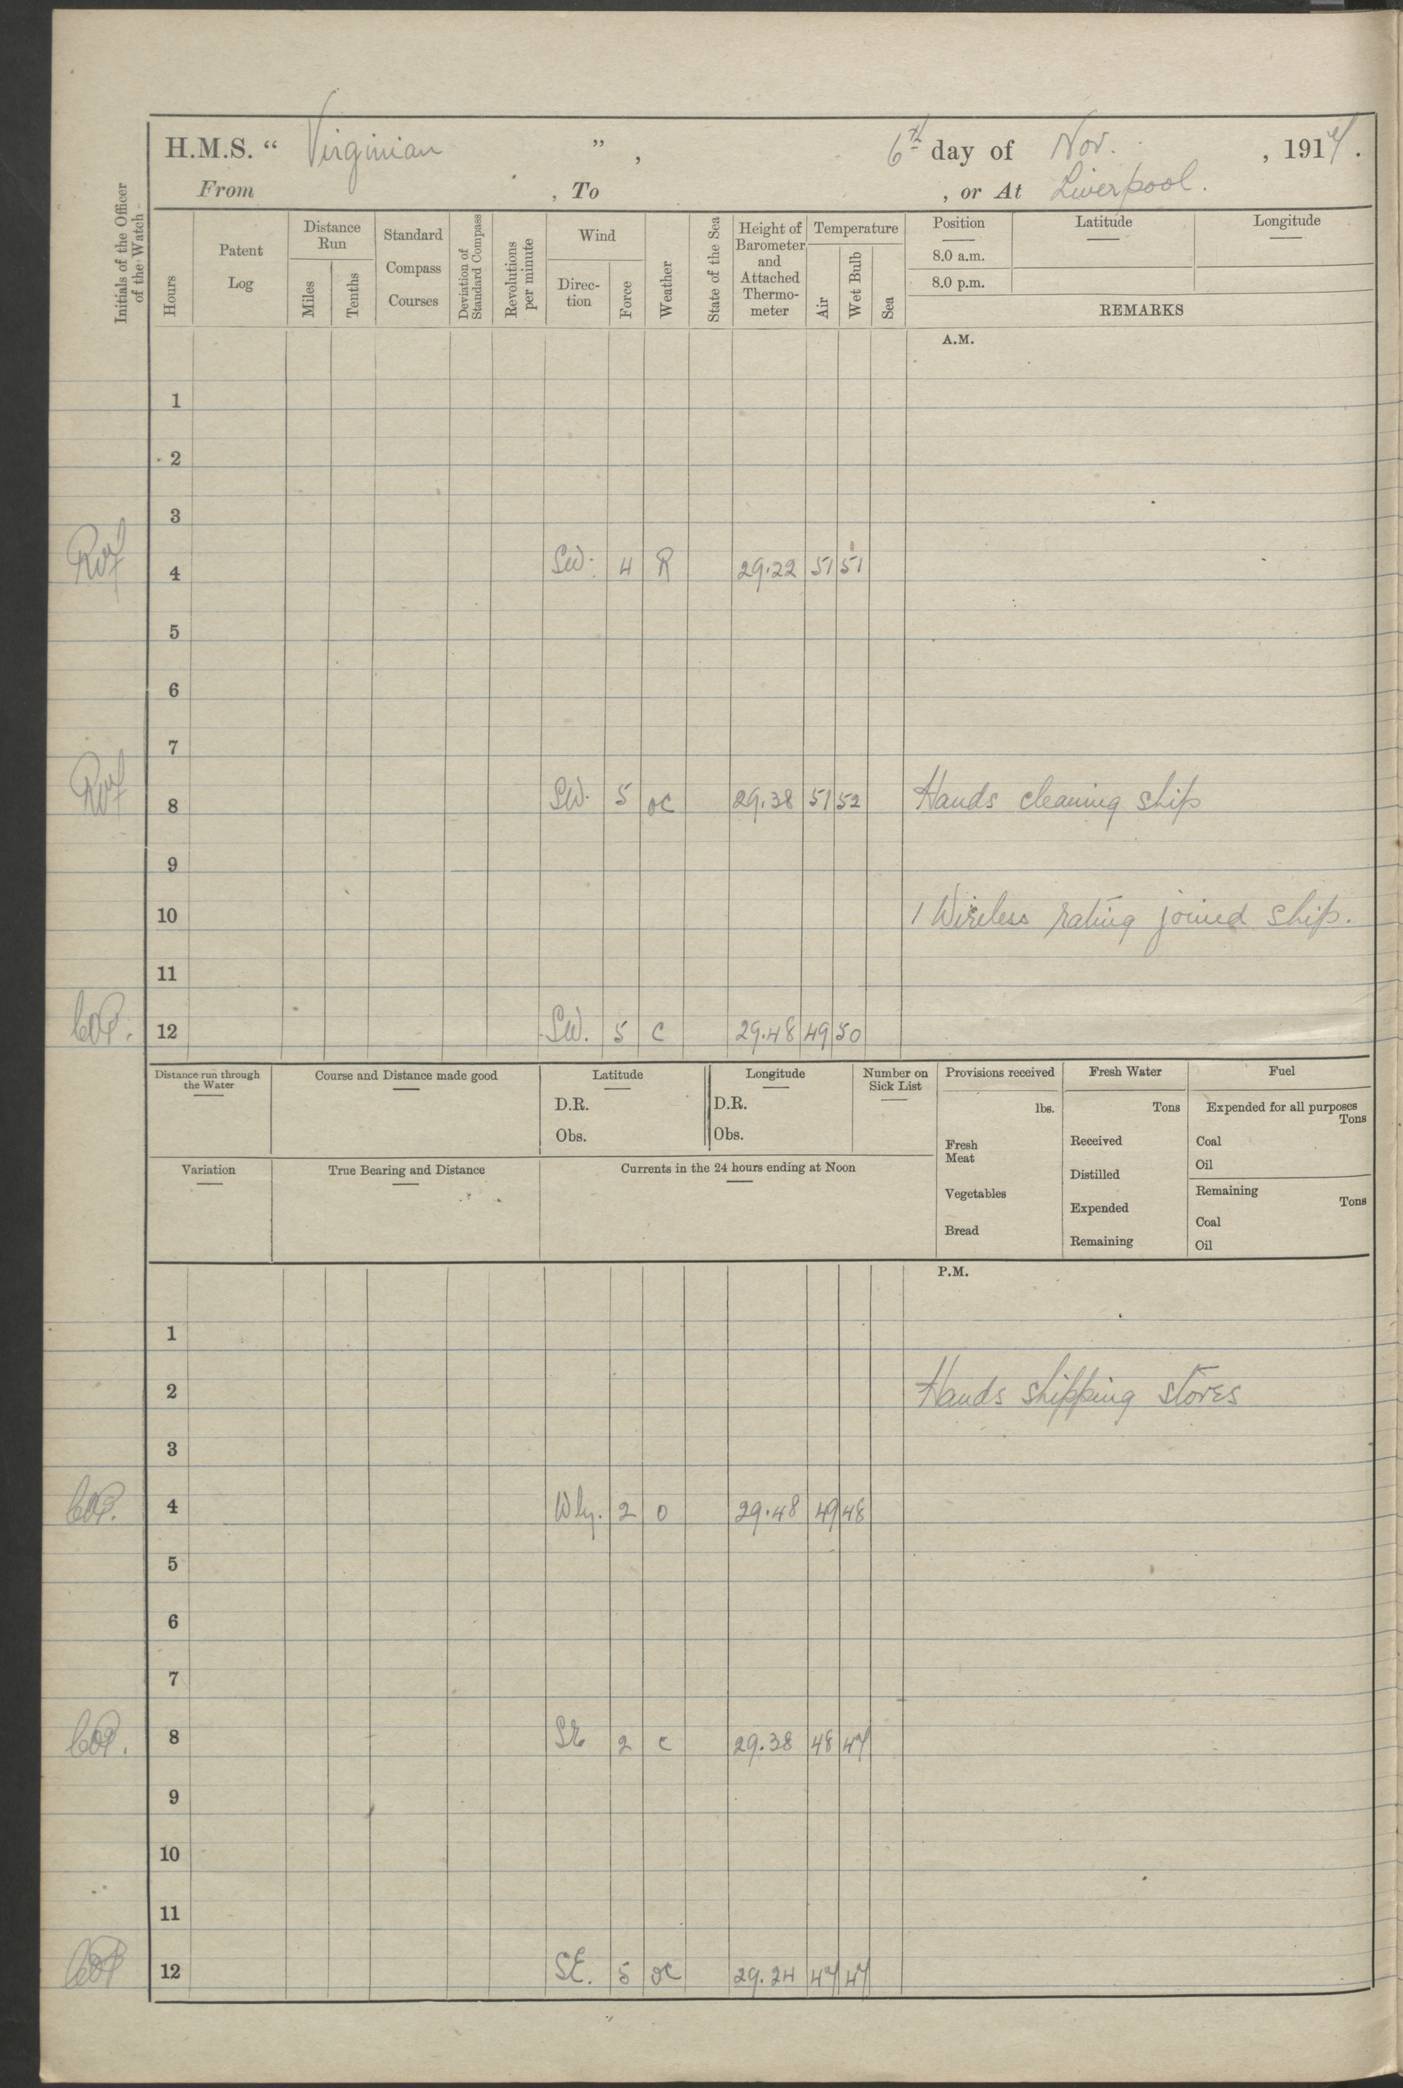 H.M.S. “ Virginian ” , 6th day of Nov. , 1917 .
From , To , or At Liverpool.
Initials of the Officer of the Watch
Hours
Patent Log
Distance Run
Miles
Tenths
Standard Compass Courses
Deviation of Standard Compass
Revolutions per minute
Wind
Direc-tion
Force
Weather
State of the Sea
Height of Barometer and Attached Thermo-meter
Temperature
Air
Wet Bulb
Sea
Position Latitude Longitude
8.0 a.m.
8.0 p.m.
REMARKS
A.M.
1
2
3
4 SW. 4 R 29.22 51 51
5
6
7
8 SW. 5 oc 29.38 51 52 Hands cleaning ship
9
10 1 Wireless rating joined ship.
11
12 SW. 5 c 29.48 49 50
Distance run through the Water
Course and Distance made good
Latitude
D.R.
Obs.
Longitude
D.R.
Obs.
Number on Sick List
Provisions received
lbs.
Fresh Meat
Vegetables
Bread
Fresh Water
Tons
Received
Distilled
Expended
Remaining
Fuel
Expended for all purposes
Tons
Coal
Oil
Remaining
Tons
Coal
Oil
Variation
True Bearing and Distance
Currents in the 24 hours ending at Noon
P.M.
1
2 Hands shipping stores
3
4 Wly. 2 o 29.48 49 48
5
6
7
8 SE 2 c 29.38 48 47
9
10
11
12 SE. 5 oc 29.24 47 47